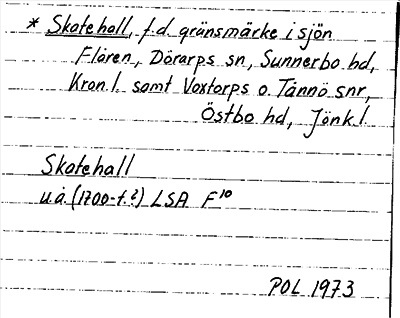 * Skatehall, f.d. gränsmärke i sjön
Flåren, Dörarps sn, Sunnerbo hd,
Kron.l. samt Voxtorps o. Tånnö snr,
Östbo hd, Jönk.l.
Skatehall
u.å. (1700-t.?) LSA F10
POL 1973